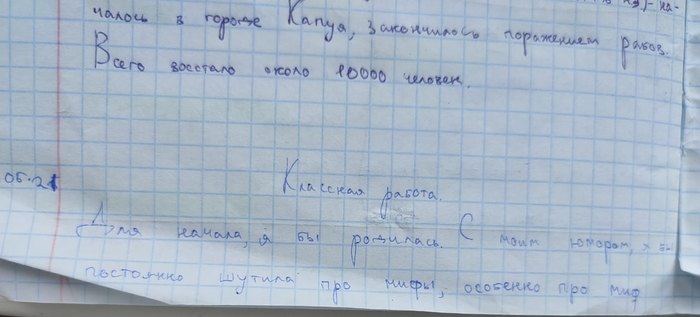 чалось в городе Капуа, закончилось поражением рабов.
Всего восстало около 10000 человек.
05.21
Классная работа.
Для начала, я бы родилась. С моим юмором, я бы
постоянно шутила про мифы, особенно про миф